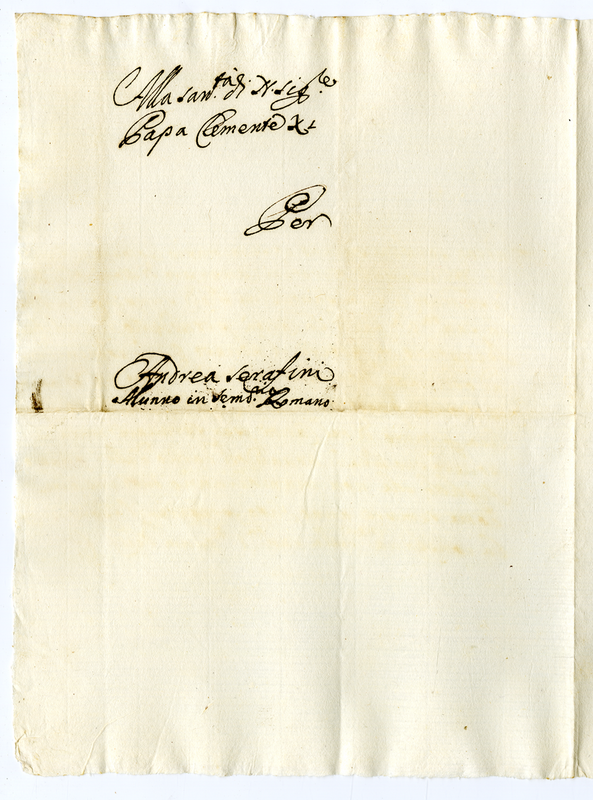 Alla san.tà di N. sig.re
Papa Clemente XI
Per
Andrea serafini
Alunno in sem.rio Romano